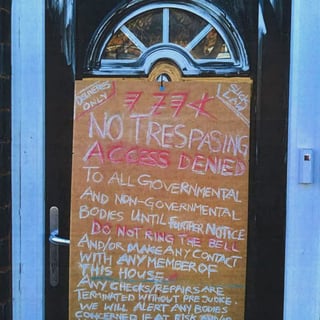 DELIVERIES ONLY
NO TRESPASING
ACCESS DENIED
TO ALL GOVERNMENTAL
AND NON-GOVERNMENTAL
BODIES UNTIL FURTHER NOTICE
DO NOT RING THE BELL
AND/OR MAKE ANY CONTACT
WITH ANY MEMBER OF
THIS HOUSE.
ANY CHECKS/REPAIRS ARE
TERMINATED WITHOUT PREJUDICE.
WE WILL ALERT ANY BODIES
CONCERNED IF AT RISK AND/OR